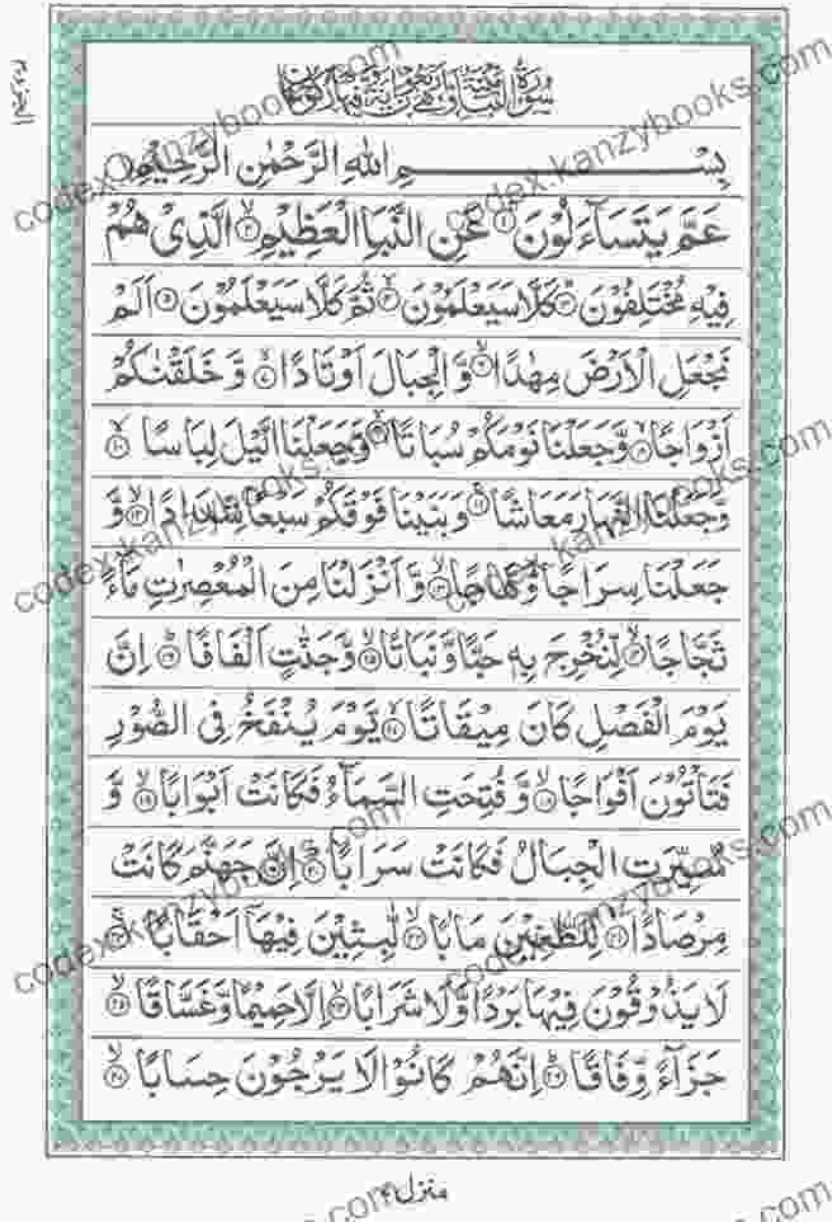 الجزء ٣٠
سُوْرَةُ النَّبَاِ مَكِّيَّةٌ وَّهِيَ اَرْبَعُوْنَ اٰيَةً وَّفِيْهَا رُكُوْعَانِ
بِسْمِ اللهِ الرَّحْمٰنِ الرَّحِيْمِ
عَمَّ يَتَسَآءَلُوْنَ ۝١ عَنِ النَّبَاِ الْعَظِيْمِ ۝٢ الَّذِيْ هُمْ
فِيْهِ مُخْتَلِفُوْنَ ۝٣ كَلَّا سَيَعْلَمُوْنَ ۝٤ ثُمَّ كَلَّا سَيَعْلَمُوْنَ ۝٥ اَلَمْ
نَجْعَلِ الْاَرْضَ مِهٰدًا ۝٦ وَّالْجِبَالَ اَوْتَادًا ۝٧ وَّخَلَقْنٰكُمْ
اَزْوَاجًا ۝٨ وَّجَعَلْنَا نَوْمَكُمْ سُبَاتًا ۝٩ وَّجَعَلْنَا الَّيْلَ لِبَاسًا ۝١٠
وَّجَعَلْنَا النَّهَارَ مَعَاشًا ۝١١ وَبَنَيْنَا فَوْقَكُمْ سَبْعًا شِدَادًا ۝١٢ وَّ
جَعَلْنَا سِرَاجًا وَّهَّاجًا ۝١٣ وَّاَنْزَلْنَا مِنَ الْمُعْصِرٰتِ مَآءً
ثَجَّاجًا ۝١٤ لِّنُخْرِجَ بِهٖ حَبًّا وَّنَبَاتًا ۝١٥ وَّجَنّٰتٍ اَلْفَافًا ۝١٦ اِنَّ
يَوْمَ الْفَصْلِ كَانَ مِيْقَاتًا ۝١٧ يَّوْمَ يُنْفَخُ فِي الصُّوْرِ
فَتَاْتُوْنَ اَفْوَاجًا ۝١٨ وَّفُتِحَتِ السَّمَآءُ فَكَانَتْ اَبْوَابًا ۝١٩ وَّ
سُيِّرَتِ الْجِبَالُ فَكَانَتْ سَرَابًا ۝٢٠ اِنَّ جَهَنَّمَ كَانَتْ
مِرْصَادًا ۝٢١ لِّلطّٰغِيْنَ مَاٰبًا ۝٢٢ لّٰبِثِيْنَ فِيْهَآ اَحْقَابًا ۝٢٣
لَا يَذُوْقُوْنَ فِيْهَا بَرْدًا وَّلَا شَرَابًا ۝٢٤ اِلَّا حَمِيْمًا وَّغَسَّاقًا ۝٢٥
جَزَآءً وِّفَاقًا ۝٢٦ اِنَّهُمْ كَانُوْا لَا يَرْجُوْنَ حِسَابًا ۝٢٧
منزل
codex.kanzybooks.com
codex.kanzybooks.com
codex.kanzybooks.com
codex.kanzybooks.com
codex.kanzybooks.com
codex.kanzybooks.com